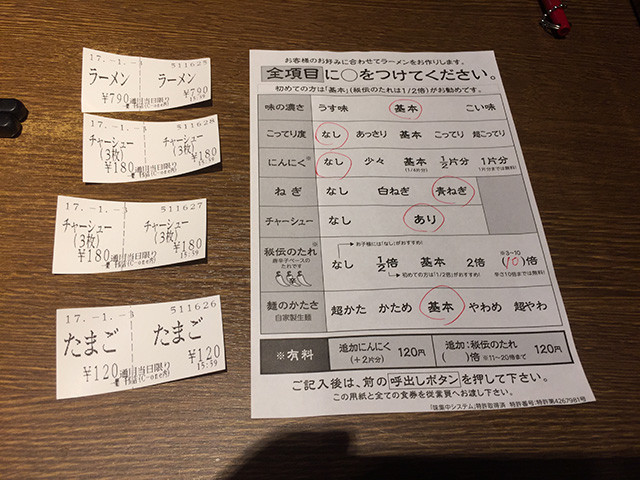 17.-1.-3 511625
ラーメン ラーメン
¥790 ¥790
通用当日限り
17.-1.-3 511628
チャーシュー チャーシュー
(3枚) (3枚)
¥180 ¥180
通用当日限り 15:59
17.-1.-3 511627
チャーシュー チャーシュー
(3枚) (3枚)
¥180 ¥180
通用当日限り 15:59
17.-1.-3 511626
たまご たまご
¥120 ¥120
通用当日限り 15:59
お客様のお好みに合わせてラーメンをお作りします。
全項目に○をつけてください。
初めての方は「基本」(秘伝のたれは1/2倍)がお勧めです。
味の濃さ うす味 基本 こい味
こってり度 なし あっさり 基本 こってり 超こってり
にんにく※ なし 少々 基本 1/2片分 1片分
(1/4片分) 1片分までは無料
ねぎ なし 白ねぎ 青ねぎ
チャーシュー なし あり
お子様には「なし」がおすすめ!
秘伝のたれ※ なし 1/2倍 基本 2倍 ※3~10 (10)倍
唐辛子ベースのたれです
初めての方は「1/2倍」がおすすめ! 辛さ10倍までは無料!
麺のかたさ 超かた かため 基本 やわめ 超やわ
自家製生麺
※有料 追加にんにく 120円 追加:秘伝のたれ 120円
(+2片分) ( )倍 ※11~20倍まで
ご記入後は、前の呼出しボタンを押して下さい。
この用紙と全ての食券を従業員へお渡し下さい。
「味集中システム」特許取得済 特許番号:特許第4267981号